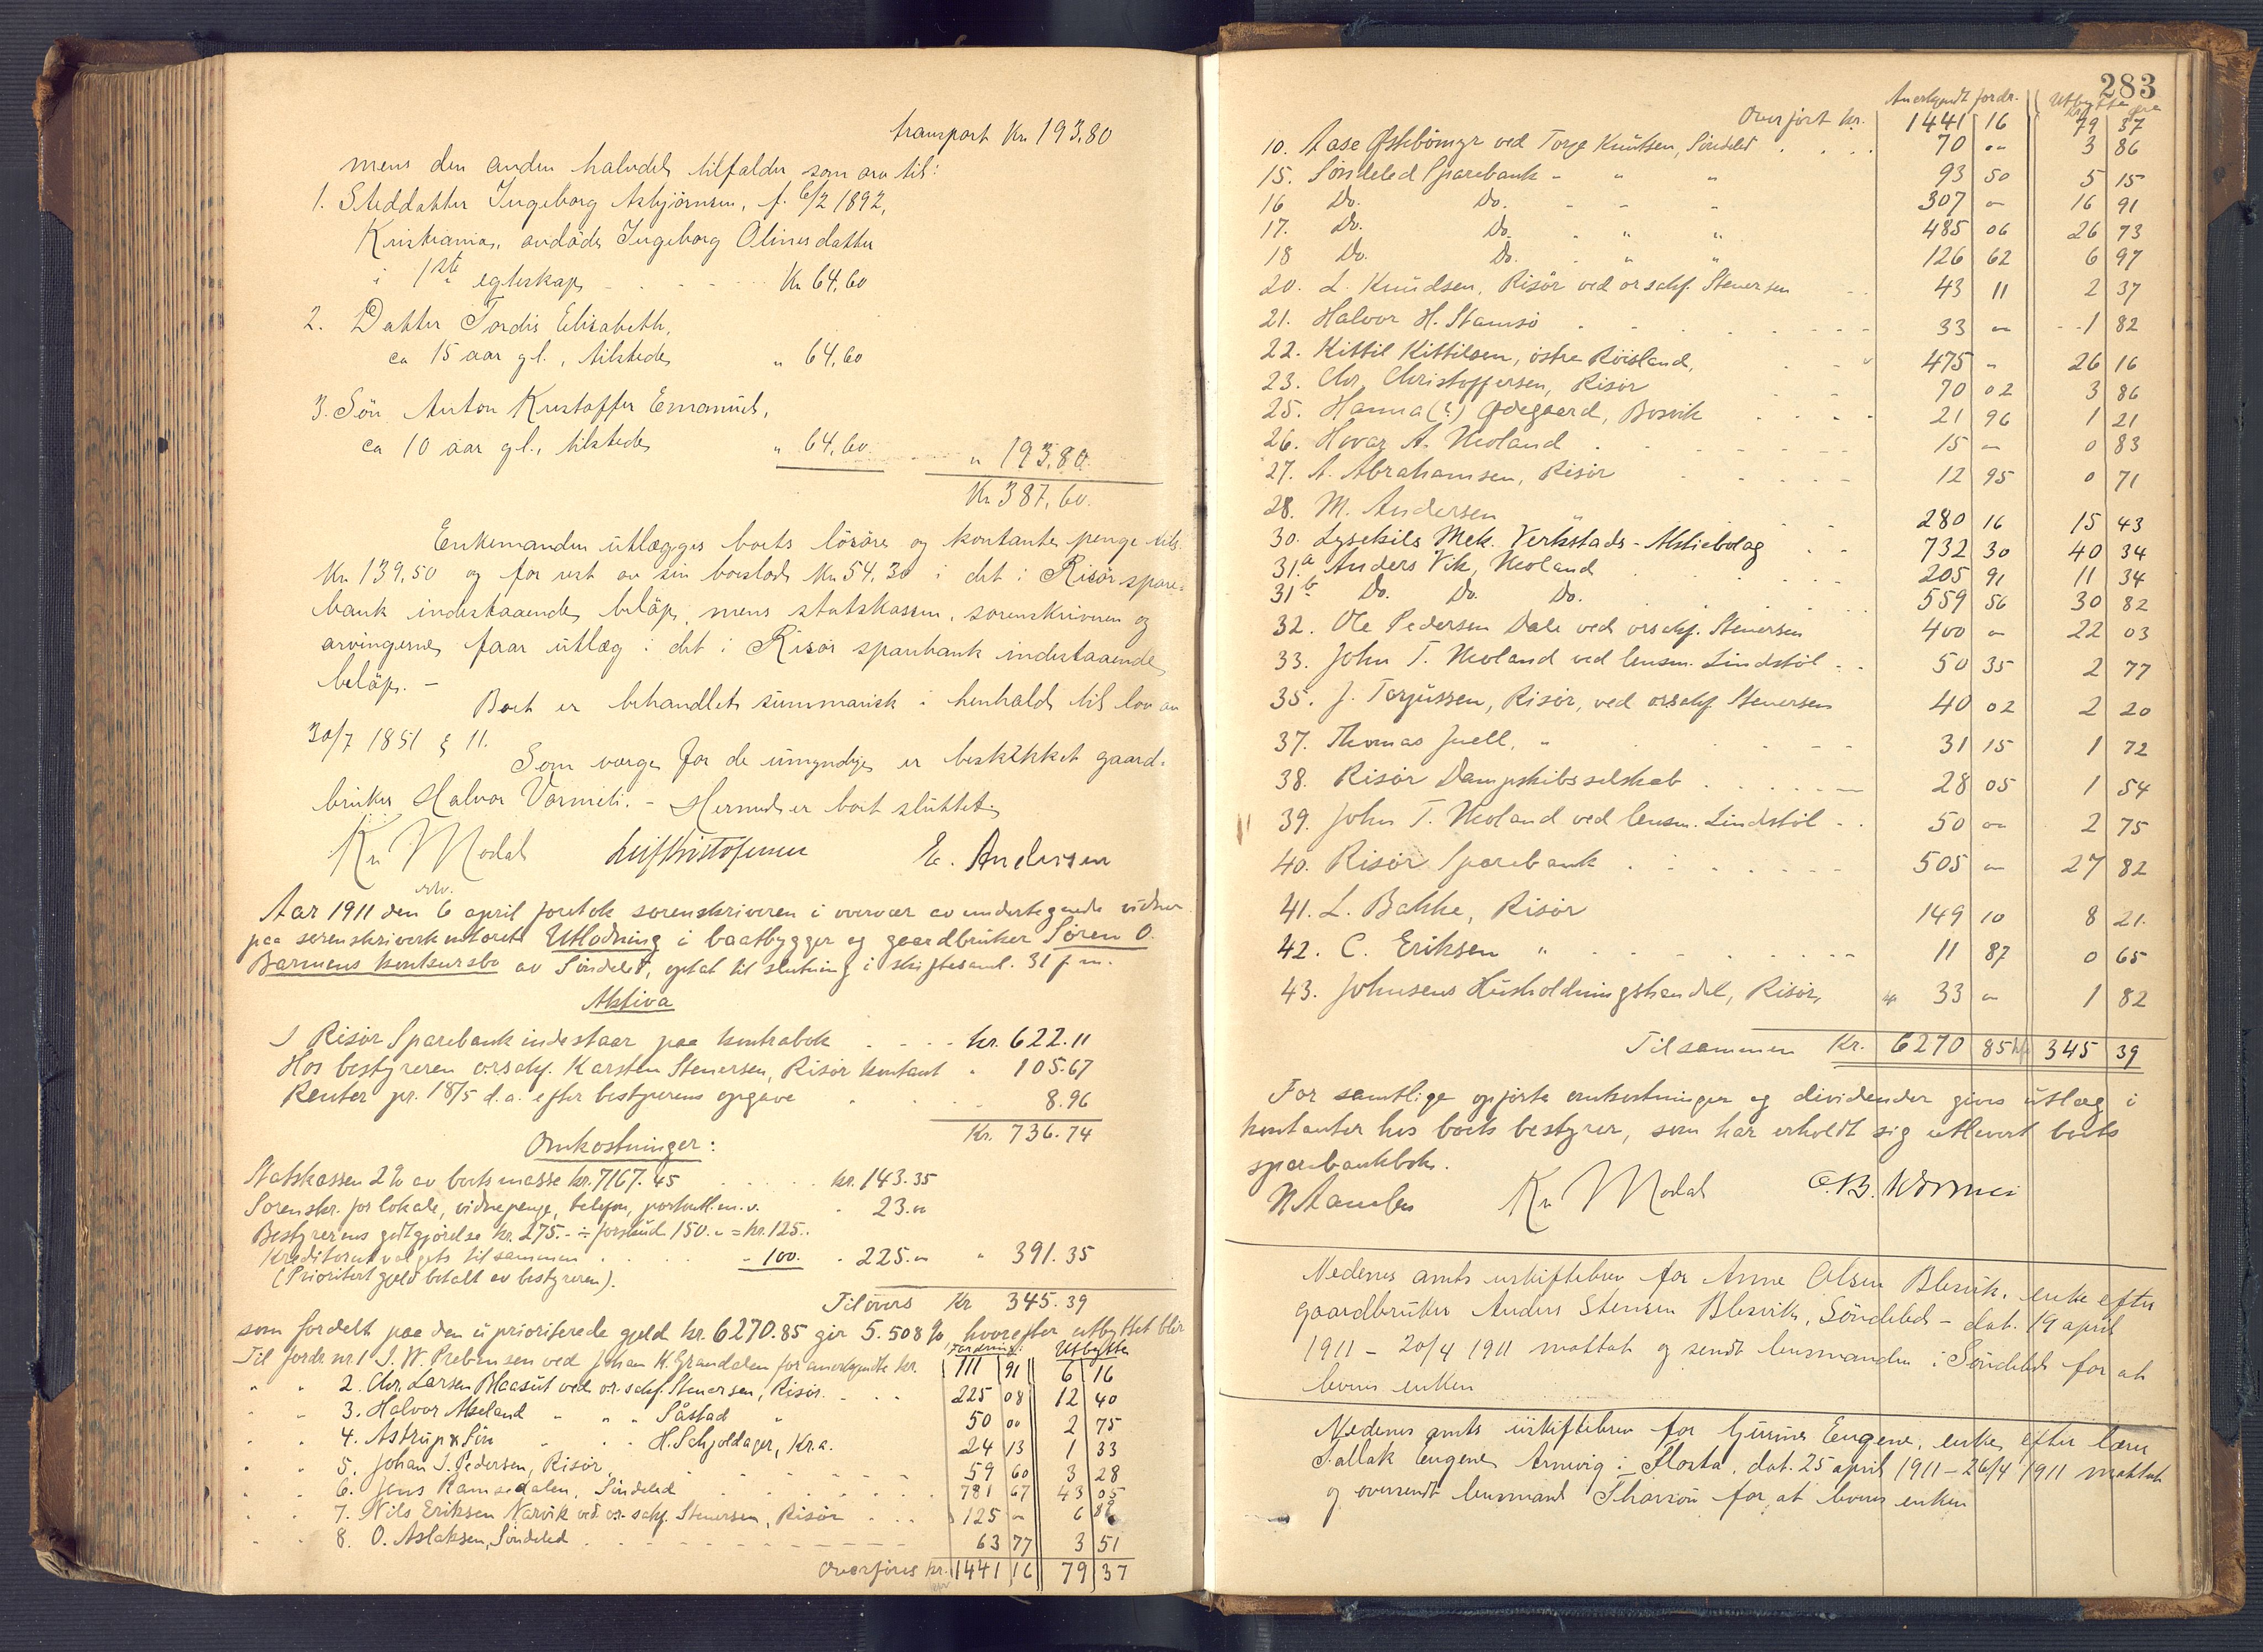 transport Kr 193,80
mens den anden halvdel tilfalder som arv til:
1. Steddatter Ingeborg Asbjørnsen, f. 6/2 1892,
Kristiania, avdöde Ingeborg Olinesdatter
i 1ste egteskap - - - - Kr 64,60
2. Datter Tordis Elisabeth,
ca 15 aar gl., tilstede " 64,60
3. Sön Anton Kristoffer Emanuel,
ca 10 aar gl., tilstede " 64,60 " 193,80
Kr 387,60.
Enkemanden utlægges boets lösöre og kontante penge tils.
Kr 139,50 og for rest av sin boeslod Kr 54,30 i det i Risör spare-
bank indestaaende beløp, mens statskassen, sorenskriveren og
arvingerne faar utlæg i det i Risör sparebank indestaaende
beløp. -
Boet er behandlet summarisk i henhold til lov av
30/7 1851 § 11.
Som værge for de umyndige er beskikket gaard-
bruker Halvor Vormeli. - Hermed er boet sluttet.
Kr Modal Leif Kristofersen E. Andersen
Aar 1911 den 6 april foretok sorenskriveren i overvær av undertegnede vidner
paa sorenskriverkontoret Utlodning i baatbygger og gaardbruker Søren O.
Barmens konkursbo av Søndeled, optat til slutning i skiftesaml. 31 f. m.
Aktiva
I Risør Sparebank indestaar paa kontrabok - - - kr. 622.11
Hos bestyreren orsakf. Karsten Stenersen, Risør kontant " 105.67
Renter pr. 18/5 d.a. efter bestyrerens opgave - - 8.96
Kr. 736.74
Omkostninger:
Statskassen 2% av boets masse kr. 7167.45 - - - - kr. 143.35
Sorenskr. for lokale, vidnepenge, telefon, portoutl. m.v. - 23.00
Bestyrerens godtgjørelse kr. 275.- ÷ forskud 150.- = kr. 125..
Kreditorutvalgets tilsammen - - - - 100. - 225.00 " 391.35
(Prioritert gjeld betalt av bestyreren).
Tilovers Kr 345.39
som fordelt paa den uprioriterede gjeld kr. 6270.85 gir 5.508 %, hvorefter utbyttet blir
Fordring: Utbytte
Til fordr. nr. 1 I. W. Prebensen ved Johan H. Grandalen for anerkjendte kr. 111 91 6 16
" " 2. Chr. Larsen Blaasut ved or.sakf. Stenersen, Risør. - - 225 08 12 40
" " 3. Halvor Akseland " " " Såstad " 50 00 2 75
" " 4. Astrup & Søn " " " H. Schjoldager, Kr.a. 24 13 1 33
" " 5. Johan S. Pedersen, Risør, - - - - 59 60 3 28
" " 6. Jens Ramsdalen, Søndeled - - - - 781 67 43 05
" " 7. Nils Eriksen Narvik ved or.sakf. Stenersen, Risør - - - 125 - 6 88
" " 8. O. Aslaksen, Søndeled - - - - 63 77 3 51
Overføres kr. 1441 16 79 37
283
Anerkjendt fordr. Utbytte
Overført kr. 1441 16 79 37
10. Aase Østebömyr ved Torje Knutsen, Søndeled - - - 70 - 3 86
15. Søndeled Sparebank - " " 93 50 5 15
16 Do. Do. - - " 307 - 16 91
17. Do. Do. - " " 485 06 26 73
18 Do. Do. - " " 126 62 6 97
20. L. Knudsen, Risör ved orsakf. Stenersen - - 43 11 2 37
21. Halvor H. Stamsö - - - - - - 33 - 1 82
22. Kittil Kittilsen, østre Röisland, - - 475 - 26 16
23. Chr. Christoffersen, Risør - - 70 02 3 86
25. Hanna (?) Ødegaard, Bosvik - - - - 21 96 1 21
26. Hovar A. Moland - - - - - - 15 - 0 83
27. A. Abrahamsen, Risør - - - - - 12 95 0 71
28. M. Andersen " - - 280 16 15 43
30. Lysekils Mek. Verkstads-Aktiebolag - - 732 30 40 34
31.a Anders Vik, Moland - - - - 205 91 11 34
31.b Do. Do. Do. - - - - 559 56 30 82
32. Ole Pedersen Dale ved orsakf. Stenersen 400 - 22 03
33. John T. Moland ved lensm. Lindstöl - - 50 35 2 77
35. J. Torjussen, Risör, ved orsakf. Stenersen 40 02 2 20
37. Thomas Juell, " - - - - - 31 15 1 72
38. Risør Dampskibsselskab - - - - - - 28 05 1 54
39. John T. Moland ved lensm. Lindstöl - - 50 - 2 75
40. Risör Sparebank - - - - - - 505 - 27 82
41. L. Bakke, Risør 149 10 8 21.
42. C. Eriksen " - - - - - - 11 87 0 65
43. Johnsens Husholdningshandel, Risör, 33 - 1 82
Tilsammen Kr. 6270 85 345 39
For samtlige opførte omkostninger og dividender gives utlæg i
kontanter hos boets bestyrer, som har erholdt sig utlevert boets
sparebankbok.
Kr Modal
Nedenes amts uskiftebrev for Anne Olsen Blesvik, enke efter
gaardbruker Anders Stensen Blesvik, Söndeled - dat. 19 april
1911 - 20/4 1911 mottat og sendt lensmanden i Söndeled for at
levere enken
Nedenes amts uskiftebrev for Gunine Eugene, enke efter
Tallak Eugene Arnevig i Flosta, dat. 25 april 1911 - 26/4 1911 mottat
og oversendt lensmand for at levere enken